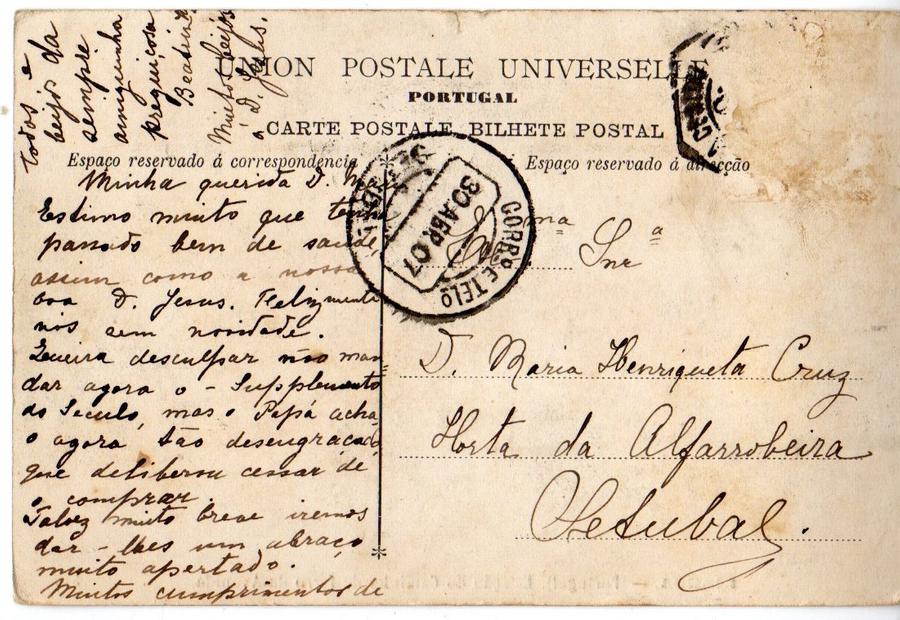 UNION POSTALE UNIVERSELLE
PORTUGAL
CARTE POSTALE, BILHETE POSTAL
Espaço reservado á correspondencia
Espaço reservado á direcção
Minha querida D. Maria
Estimo muito que tenha
passado bem de saude,
assim como a nossa
boa D. Jesus. Felizmente
nós sem novidade.
Queira desculpar não man-
dar agora o - Supplemento
do Seculo, mas o Papá acha-
o agora tão desengraçado
que deliberou cessar de
o comprar.
Talvez muito breve iremos
dar-lhes um abraço
muito apertado.
Muitos cumprimentos de
todos e
beijos da
sempre
amiguinha
preguiçosa
Beatriz
Muitos beijos
á D. Jesus.
CORRO. E TELO.
30 ABR. 07
Ex ma Snr a
D. Maria Henriqueta Cruz
Horta da Alfarrobeira
Setubal.